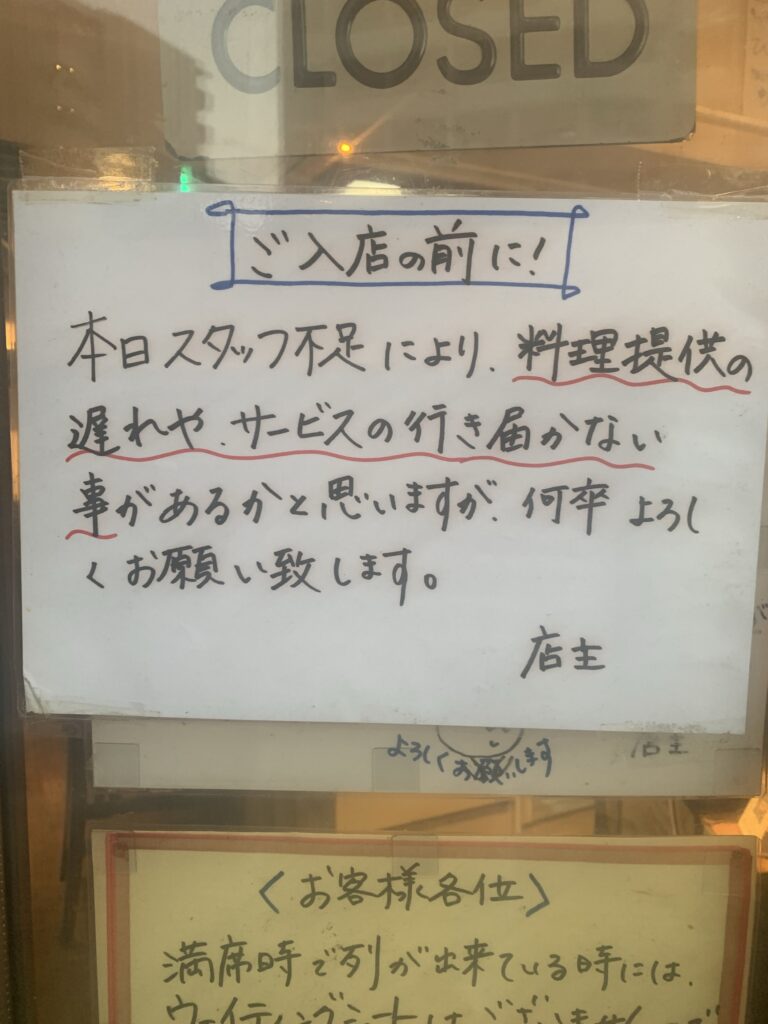 CLOSED
ご入店の前に!
本日スタッフ不足により、料理提供の
遅れや、サービスの行き届かない
事があるかと思いますが、何卒よろし
くお願い致します。
店主
よろしくお願いします
店主
〈お客様各位〉
満席時で列が出来ている時には、